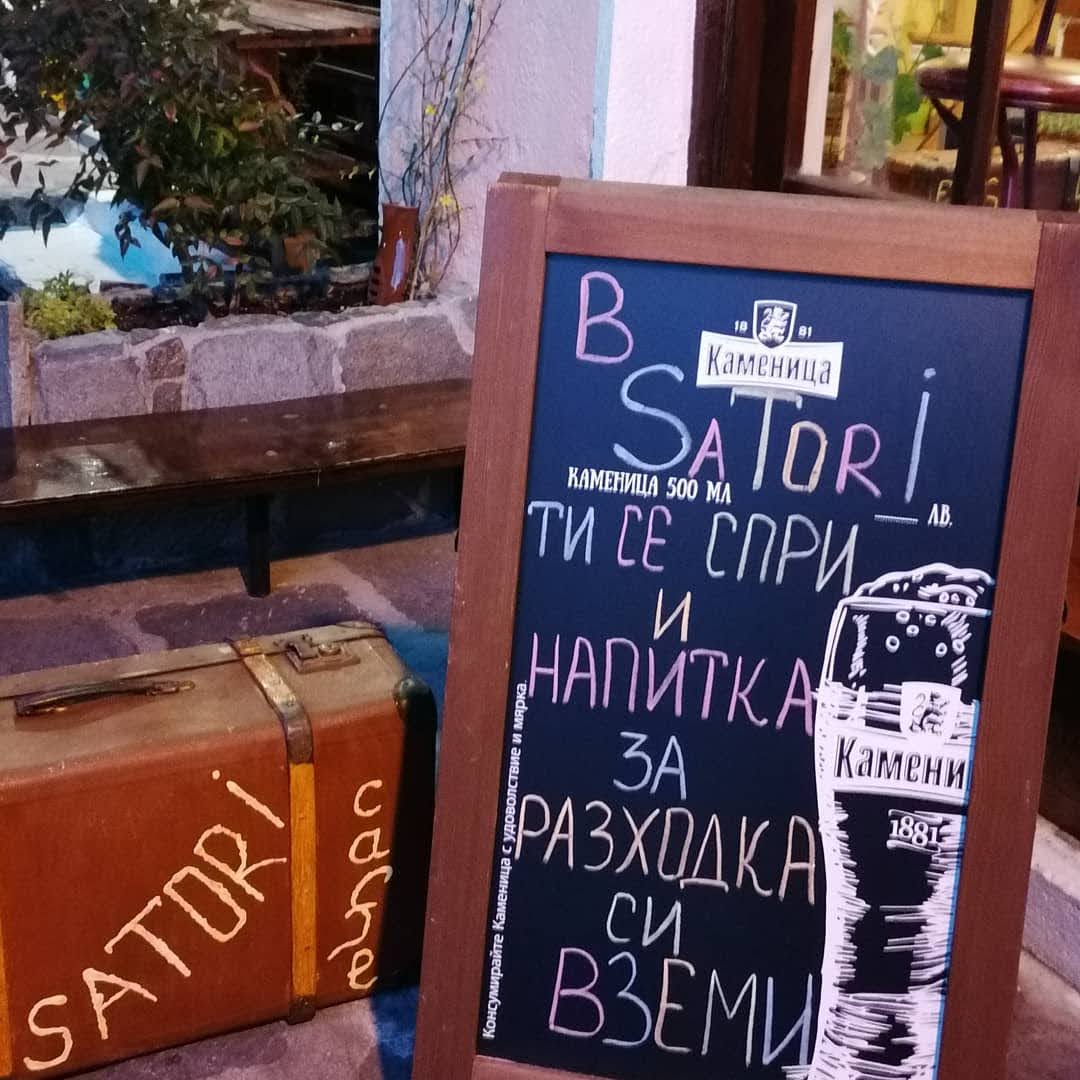 В
18 81
Каменица
SATORi
КАМЕНИЦА 500 МЛ
ЛВ.
ТИ СЕ СПРИ
И
НАПИТКА
ЗА
РАЗХОДКА
СИ
ВЗЕМИ
Консумирайте Каменица с удоволствие и мярка.
Камени
1881
SATORi
caffe